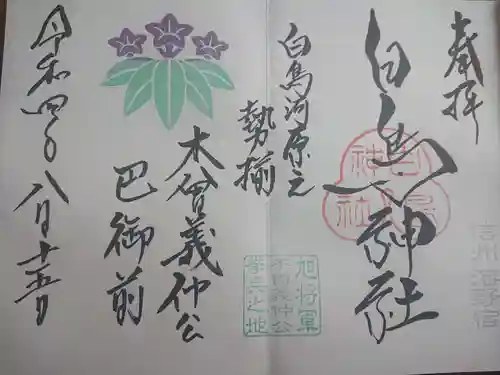 奉拝
白鳥神社
白鳥河原元
勢揃
木曾義仲公
巴御前
令和四年八月十五日
旭将軍
木曽義仲公
挙兵之地
白鳥神社
信州 海野宿